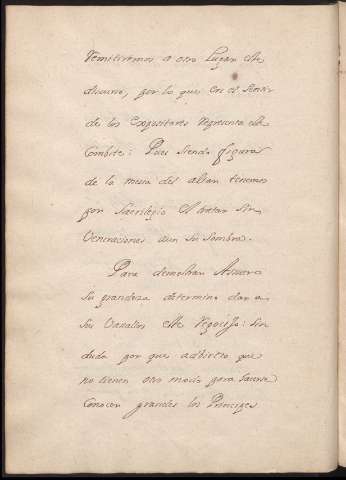 remitiremos a otro Lugar este
discurso, por lo que en el sentir
de los expositores representa este
Combite: Pues siendo figura
de la mesa del altar tenemos
por Sacrilegio el tratar sin
Veneraciones aun su sombra.
Para demostrar Asuero
su grandeza determina dar a
sus Vasallos este regocijo: sin
duda por que advirtio que
no tienen otro modo para hacerse
Conocer grandes los Principes